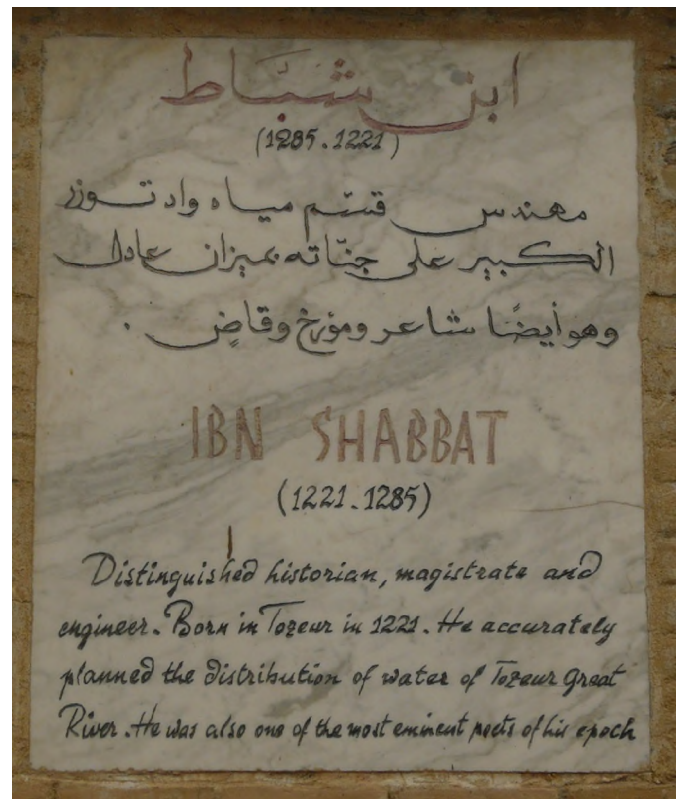 ابن شبَّاط
(1285.1221)
مهندس قسّم مياه واد توزر
الكبير على جنّاته بميزان عادل
وهو أيضًا شاعر ومؤرخ وقاضٍ .
IBN SHABBAT
(1221.1285)
Distinguished historian, magistrate and
engineer. Born in Tozeur in 1221. He accurately
planned the distribution of water of Tozeur Great
River. He was also one of the most eminent poets of his epoch